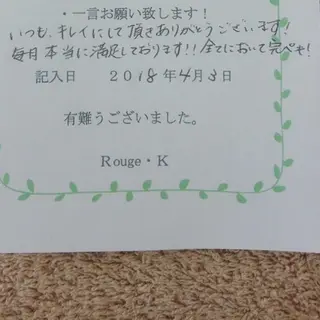 ・一言お願い致します！
いつも、キレイにして頂きありがとうございます！
毎月本当に満足しております!!全てにおいて完ペキ!
記入日　２０１８年４月３日
有難うございました。
Rouge・K